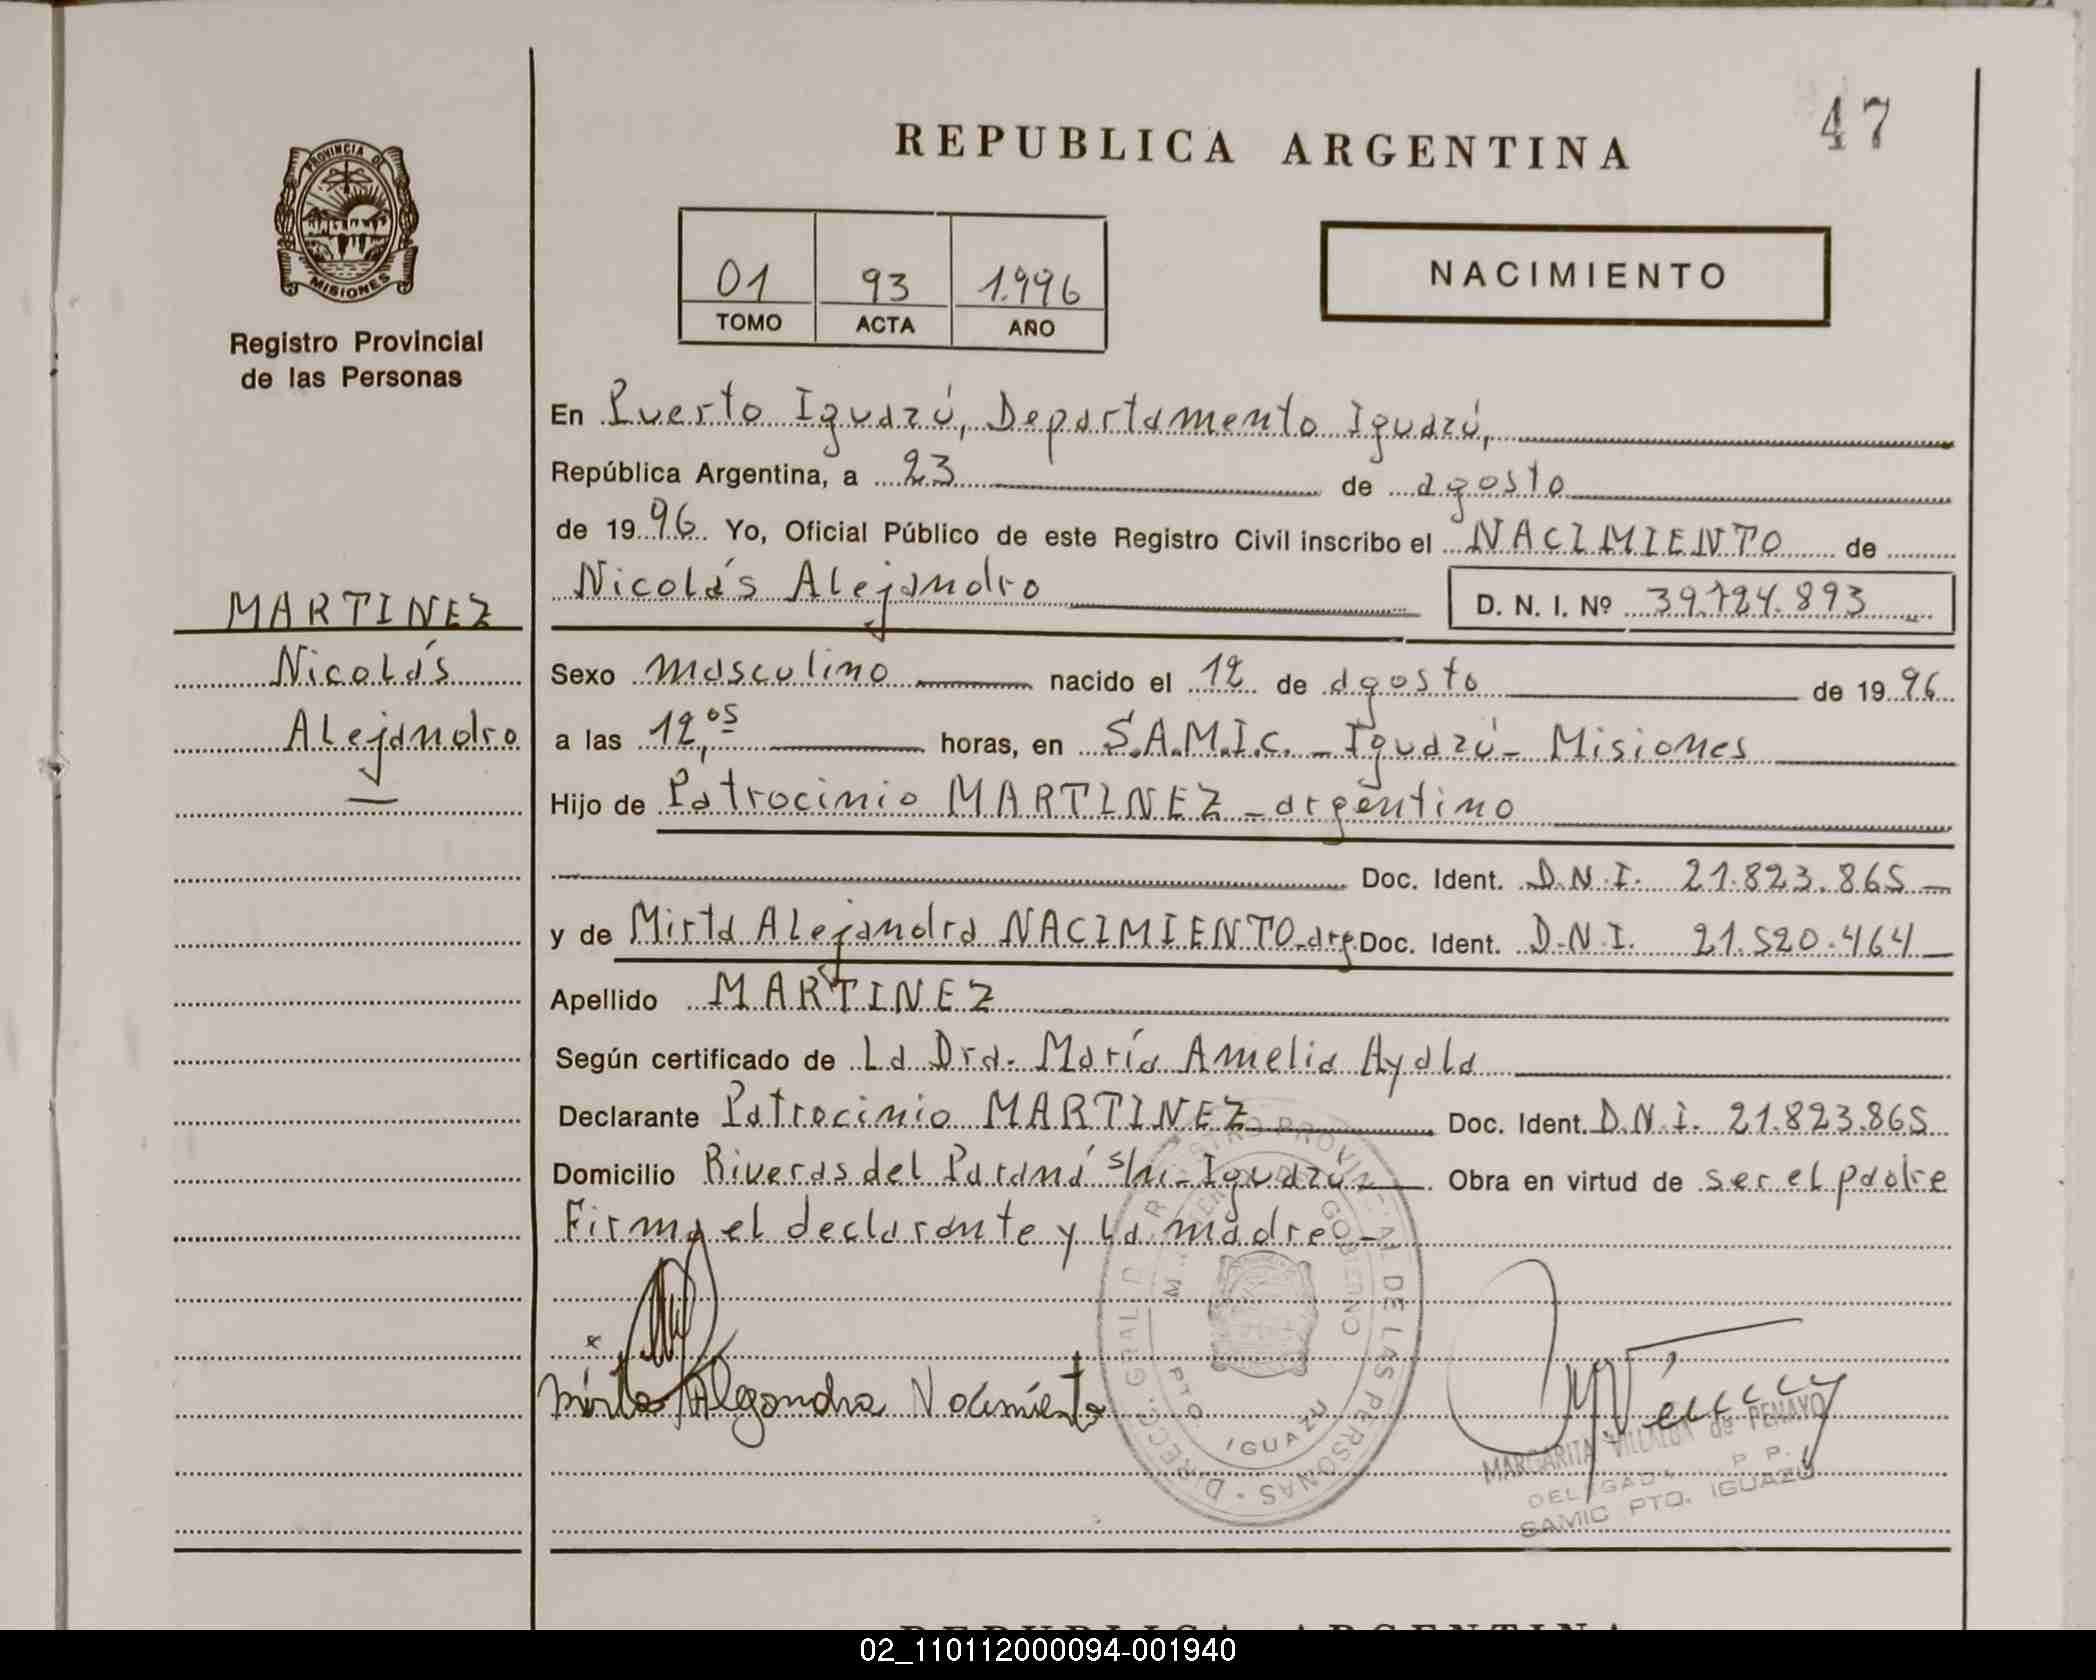 47
REPUBLICA ARGENTINA
PROVINCIA DE
MISIONES
Registro Provincial
de las Personas
01 93 1.996
TOMO ACTA AÑO
NACIMIENTO
En Puerto Iguazú, Departamento Iguazú,
República Argentina, a 23 de agosto
de 1996 Yo, Oficial Público de este Registro Civil inscribo el NACIMIENTO de
Nicolás Alejandro D. N. I. Nº
MARTINEZ
Nicolás
Alejandro
Sexo masculino nacido el 12 de agosto de 1996
a las 12,05 horas, en S.A.M.I.C. - Iguazú - Misiones
Hijo de Patrocinio MARTINEZ - argentino
Doc. Ident. D.N.I. 21.823.865
y de Mirta Alejandra NACIMIENTO - arg Doc. Ident. D.N.I. 21.520.464
Apellido MARTINEZ
Según certificado de La Dra. María Amelia Ayala
Declarante Patrocinio MARTINEZ Doc. Ident. D.N.I. 21.823.865
Domicilio Riveras del Paraná s/n - Iguazú - Obra en virtud de ser el padre
Firma el declarante y la madre -
Mirta Alegandra Nacimiento
DIRECC. GRAL D R GISTRO PROVINCIAL DE LAS PERSONAS
GOBIERNO
PTO IGUAZU
MARGARITA VILLALBA de PENAYO
DELEGADA P. P.
SAMIC PTO. IGUAZÚ
REPUBLICA ARGENTINA
02_110112000094-001940